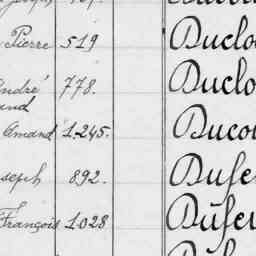 Pierre 519 Duclo
André 778. Duclo
and
Amand 1.245. Ducou
seph 892. Dufe
François 1028 Dufe